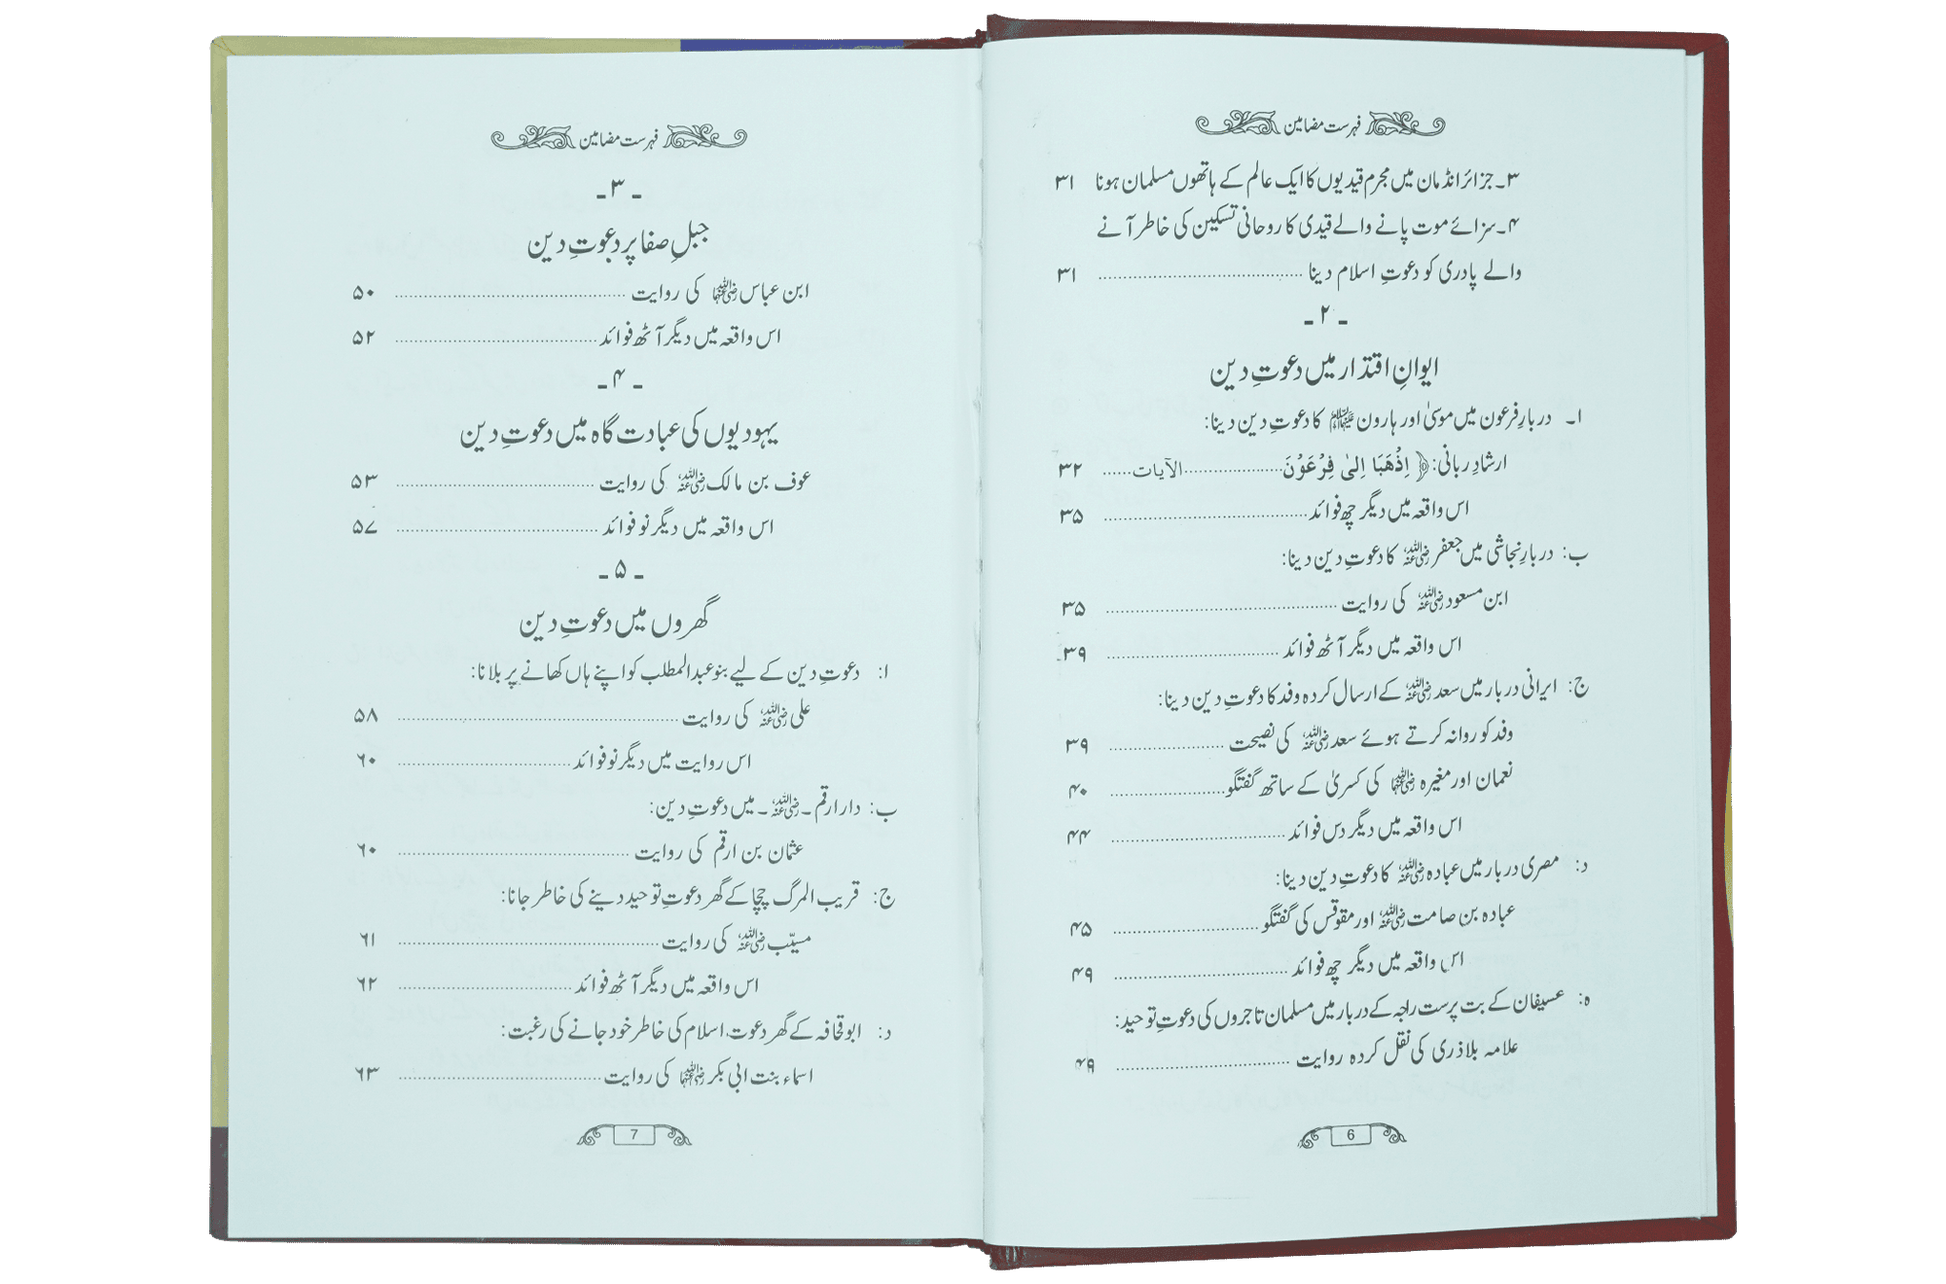 فہرست مضامین
۳۔ جزائر انڈمان میں مجرم قیدیوں کا ایک عالم کے ہاتھوں مسلمان ہونا ۳۱
۴۔ سزائے موت پانے والے قیدی کا روحانی تسکین کی خاطر آنے
والے پادری کو دعوتِ اسلام دینا ........ ۳۱
۔ ۲ ۔
ایوانِ اقتدار میں دعوتِ دین
ا۔ دربارِ فرعون میں موسیٰ اور ہارون علیہما السلام کا دعوتِ دین دینا:
ارشادِ ربانی: ﴿اِذْهَبَا اِلىٰ فِرْعَوْنَ ........ الآيات ...... ۳۲
اس واقعہ میں دیگر چھ فوائد ........ ۳۵
ب: دربارِ نجاشی میں جعفر رضی اللہ عنہ کا دعوتِ دین دینا:
ابن مسعود رضی اللہ عنہ کی روایت ........ ۳۵
اس واقعہ میں دیگر آٹھ فوائد ........ ۳۹
ج: ایرانی دربار میں سعد رضی اللہ عنہ کے ارسال کردہ وفد کا دعوتِ دین دینا:
وفد کو روانہ کرتے ہوئے سعد رضی اللہ عنہ کی نصیحت ........ ۳۹
نعمان اور مغیرہ رضی اللہ عنہما کی کسریٰ کے ساتھ گفتگو ........ ۴۰
اس واقعہ میں دیگر دس فوائد ........ ۴۴
د: مصری دربار میں عبادہ رضی اللہ عنہ کا دعوتِ دین دینا:
عبادہ بن صامت رضی اللہ عنہ اور مقوقس کی گفتگو ........ ۴۵
اس واقعہ میں دیگر چھ فوائد ........ ۴۹
ہ: عسیفان کے بت پرست راجہ کے دربار میں مسلمان تاجروں کی دعوتِ توحید:
علامہ بلاذری کی نقل کردہ روایت ........ ۴۹
6
فہرست مضامین
۔ ۳ ۔
جبلِ صفا پر دعوتِ دین
ابن عباس رضی اللہ عنہما کی روایت ........ ۵۰
اس واقعہ میں دیگر آٹھ فوائد ........ ۵۲
۔ ۴ ۔
یہودیوں کی عبادت گاہ میں دعوتِ دین
عوف بن مالک رضی اللہ عنہ کی روایت ........ ۵۳
اس واقعہ میں دیگر نو فوائد ........ ۵۷
۔ ۵ ۔
گھروں میں دعوتِ دین
ا: دعوتِ دین کے لیے بنو عبدالمطلب کو اپنے ہاں کھانے پر بلانا:
علی رضی اللہ عنہ کی روایت ........ ۵۸
اس روایت میں دیگر نو فوائد ........ ۶۰
ب: دار ارقم ۔ رضی اللہ عنہ ۔ میں دعوتِ دین:
عثمان بن ارقم کی روایت ........ ۶۰
ج: قریب المرگ چچا کے گھر دعوتِ توحید دینے کی خاطر جانا:
مسیّب رضی اللہ عنہ کی روایت ........ ۶۱
اس واقعہ میں دیگر آٹھ فوائد ........ ۶۲
د: ابو قحافہ کے گھر دعوت اسلام کی خاطر خود جانے کی رغبت:
اسماء بنت ابی بکر رضی اللہ عنہما کی روایت ........ ۶۳
7